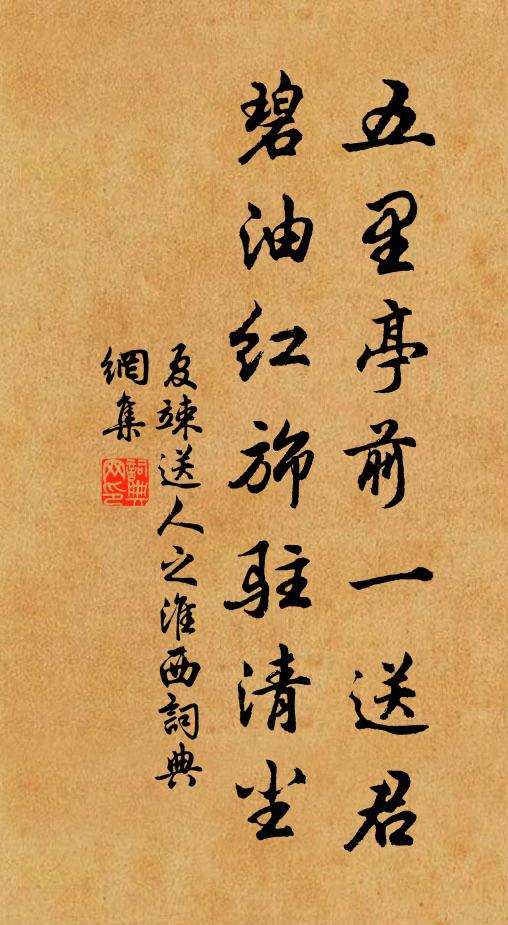 五里亭前一送君
碧油红旆驻清尘
夏竦送人之淮西詞典
網集
詞典
网印